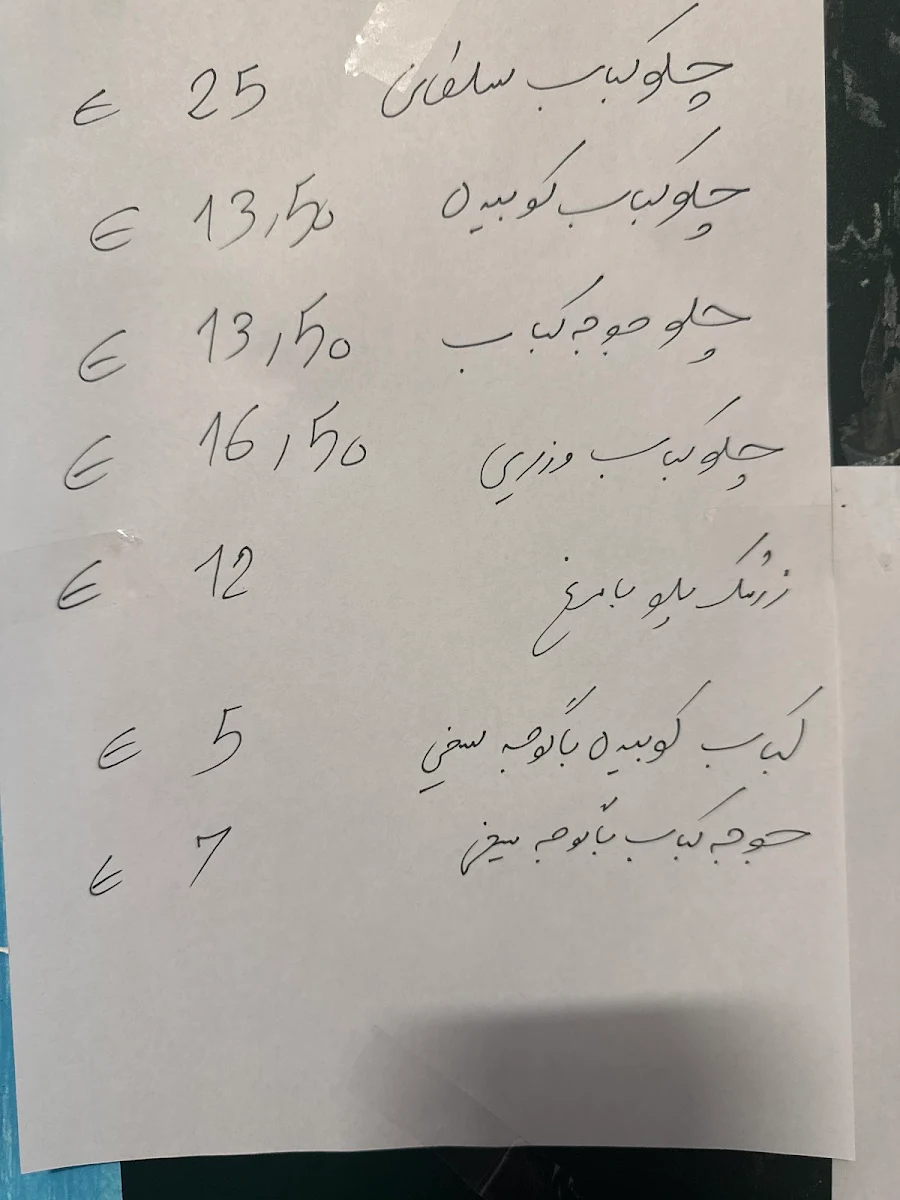 چلو کباب سلطانی 25 €
چلو کباب کوبیده 13,50 €
چلو جوجه کباب 13,50 €
چلو کباب وزیری 16,50 €
زرشک پلو با مرغ 12 €
کباب کوبیده با گوجه سیخی 5 €
جوجه کباب با گوجه سیخی 7 €